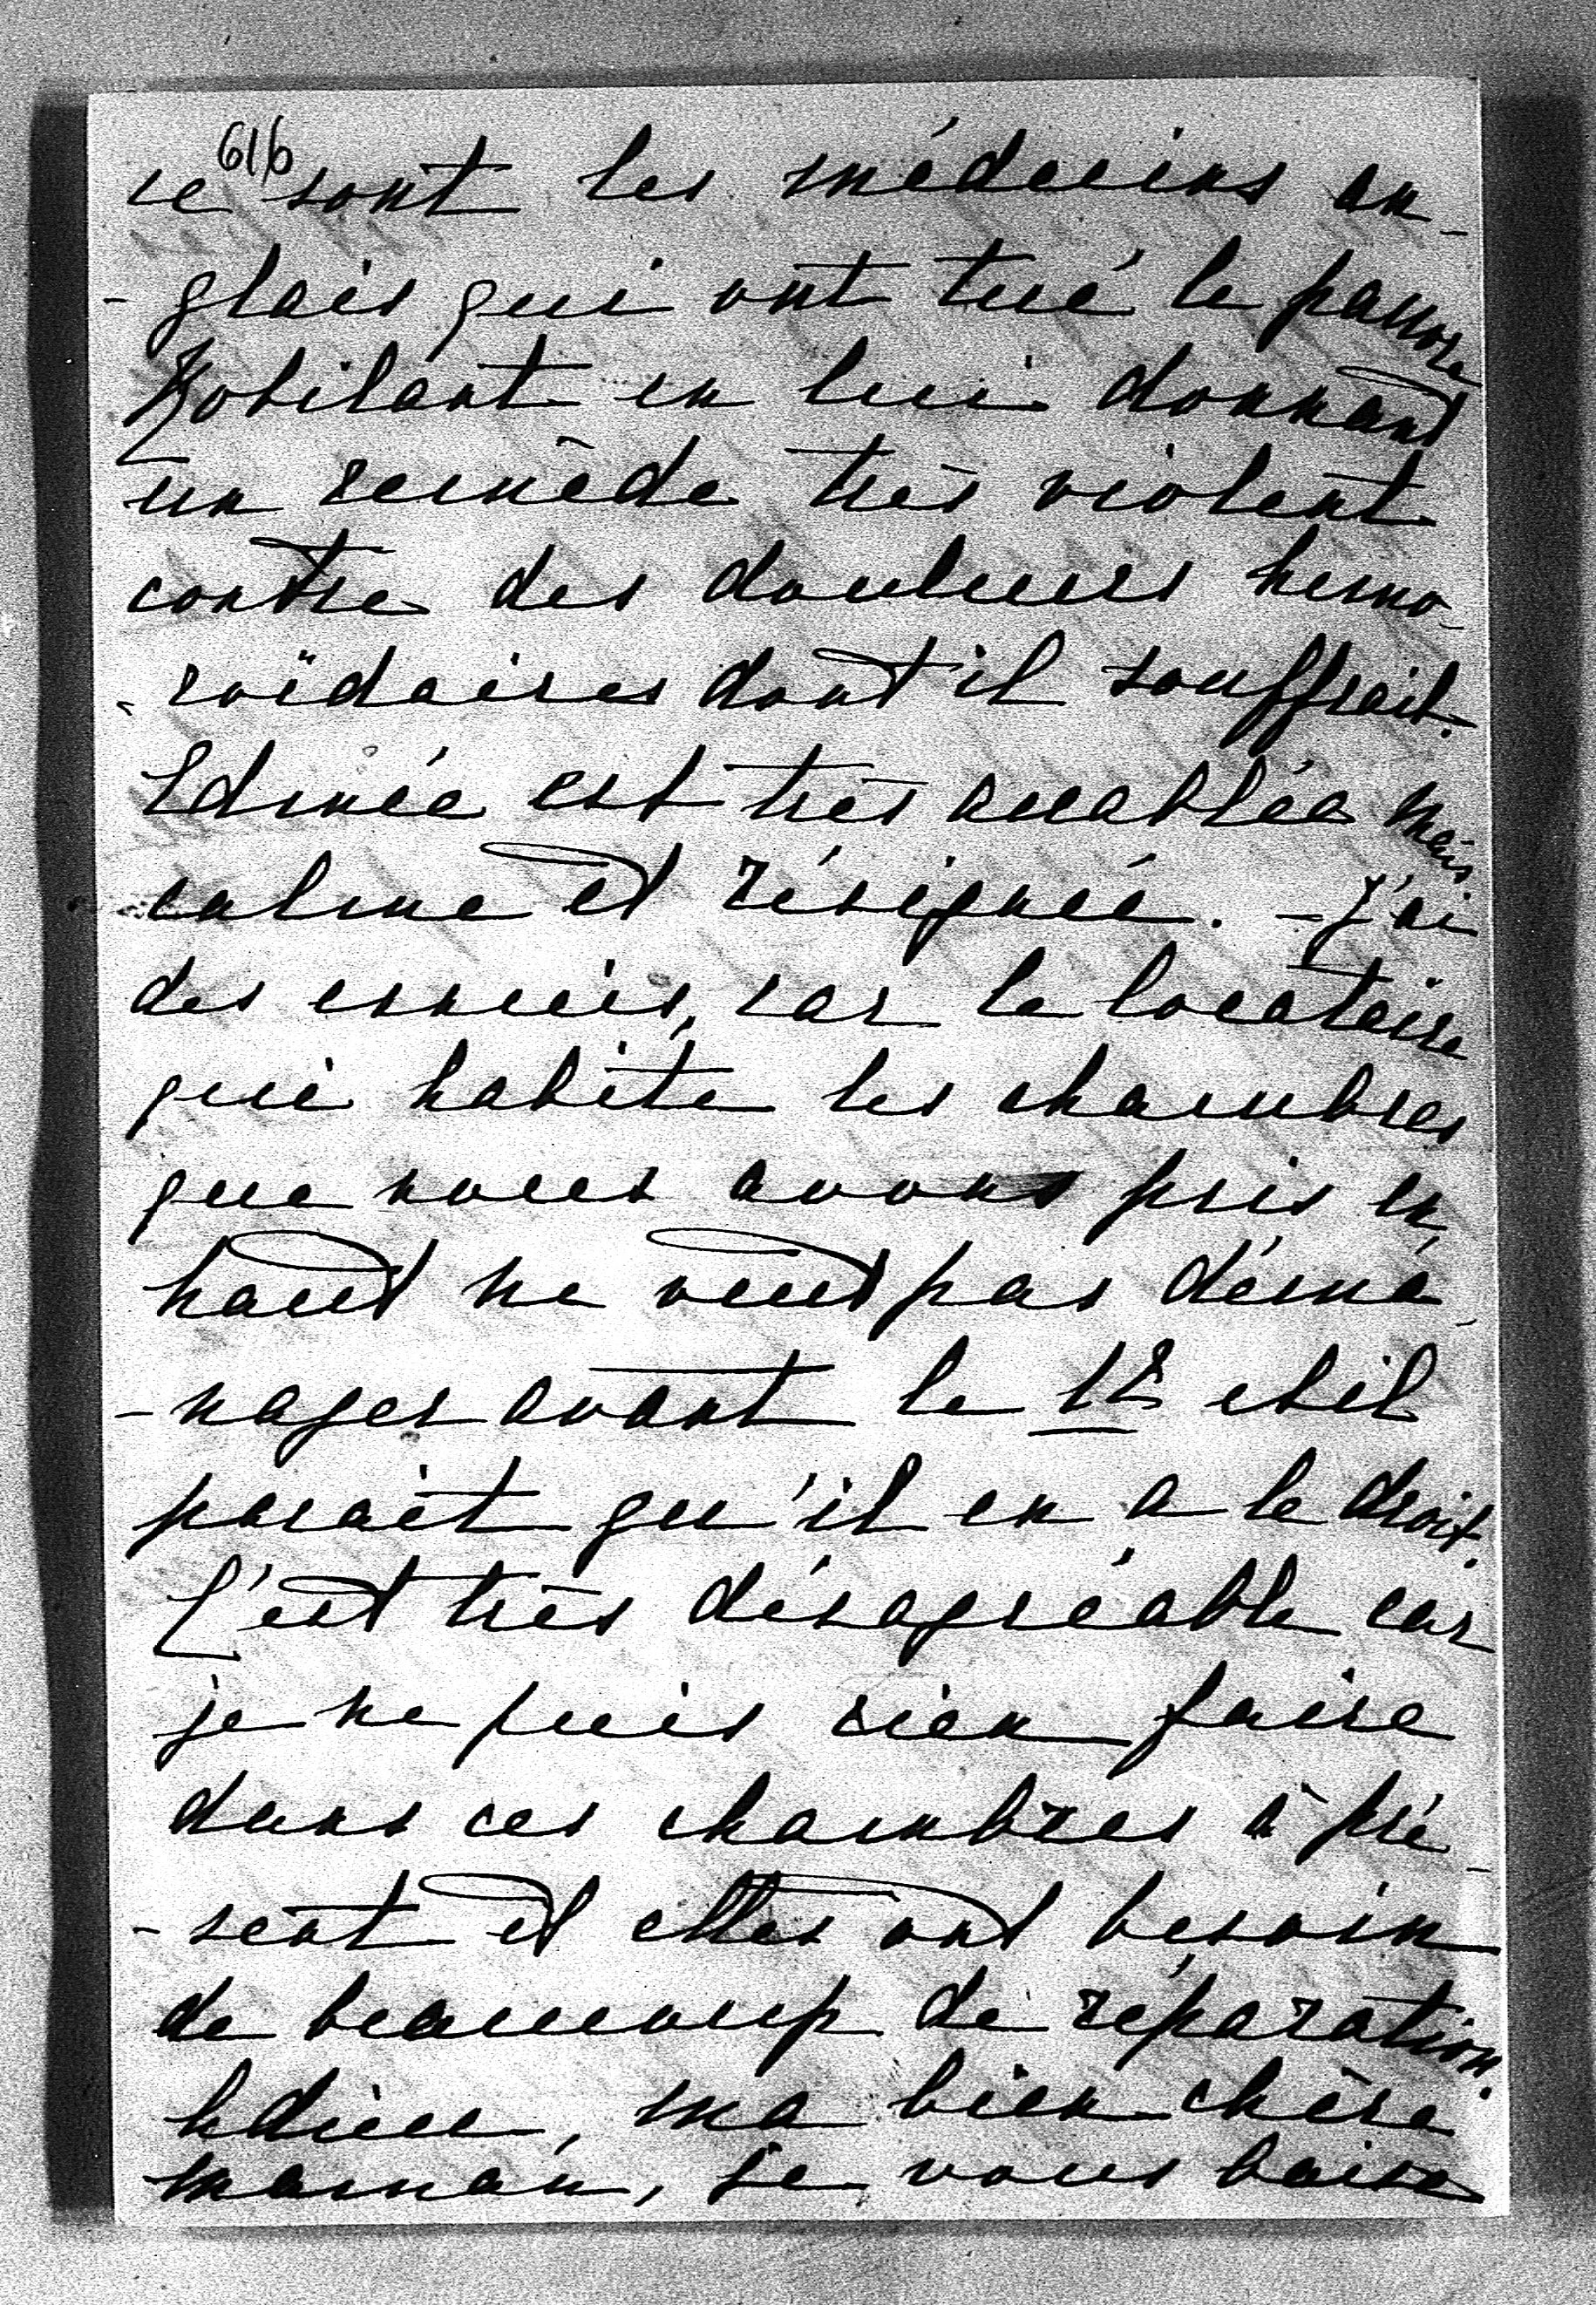 616
ce sont les médecins an-
-glais qui ont tué le pauvre
Robilant en lui donnant
un remède très violent
contre des douleurs hemo-
-roïdaires dont il souffrait.
Edmée est très accablée mais
calme et résignée. - J'ai
des ennuis, car le locataire
qui habite les chambres
que nous avons pris en
haut ne veut pas démé-
-nager avant le 12 et il
parait qu'il en a le droit.
C'est très désagréable car
je ne puis rien faire
dans ces chambres à pré-
-sent et elles ont besoin
de beaucoup de réparation.
Adieu, ma bien chère
maman, je vous baise